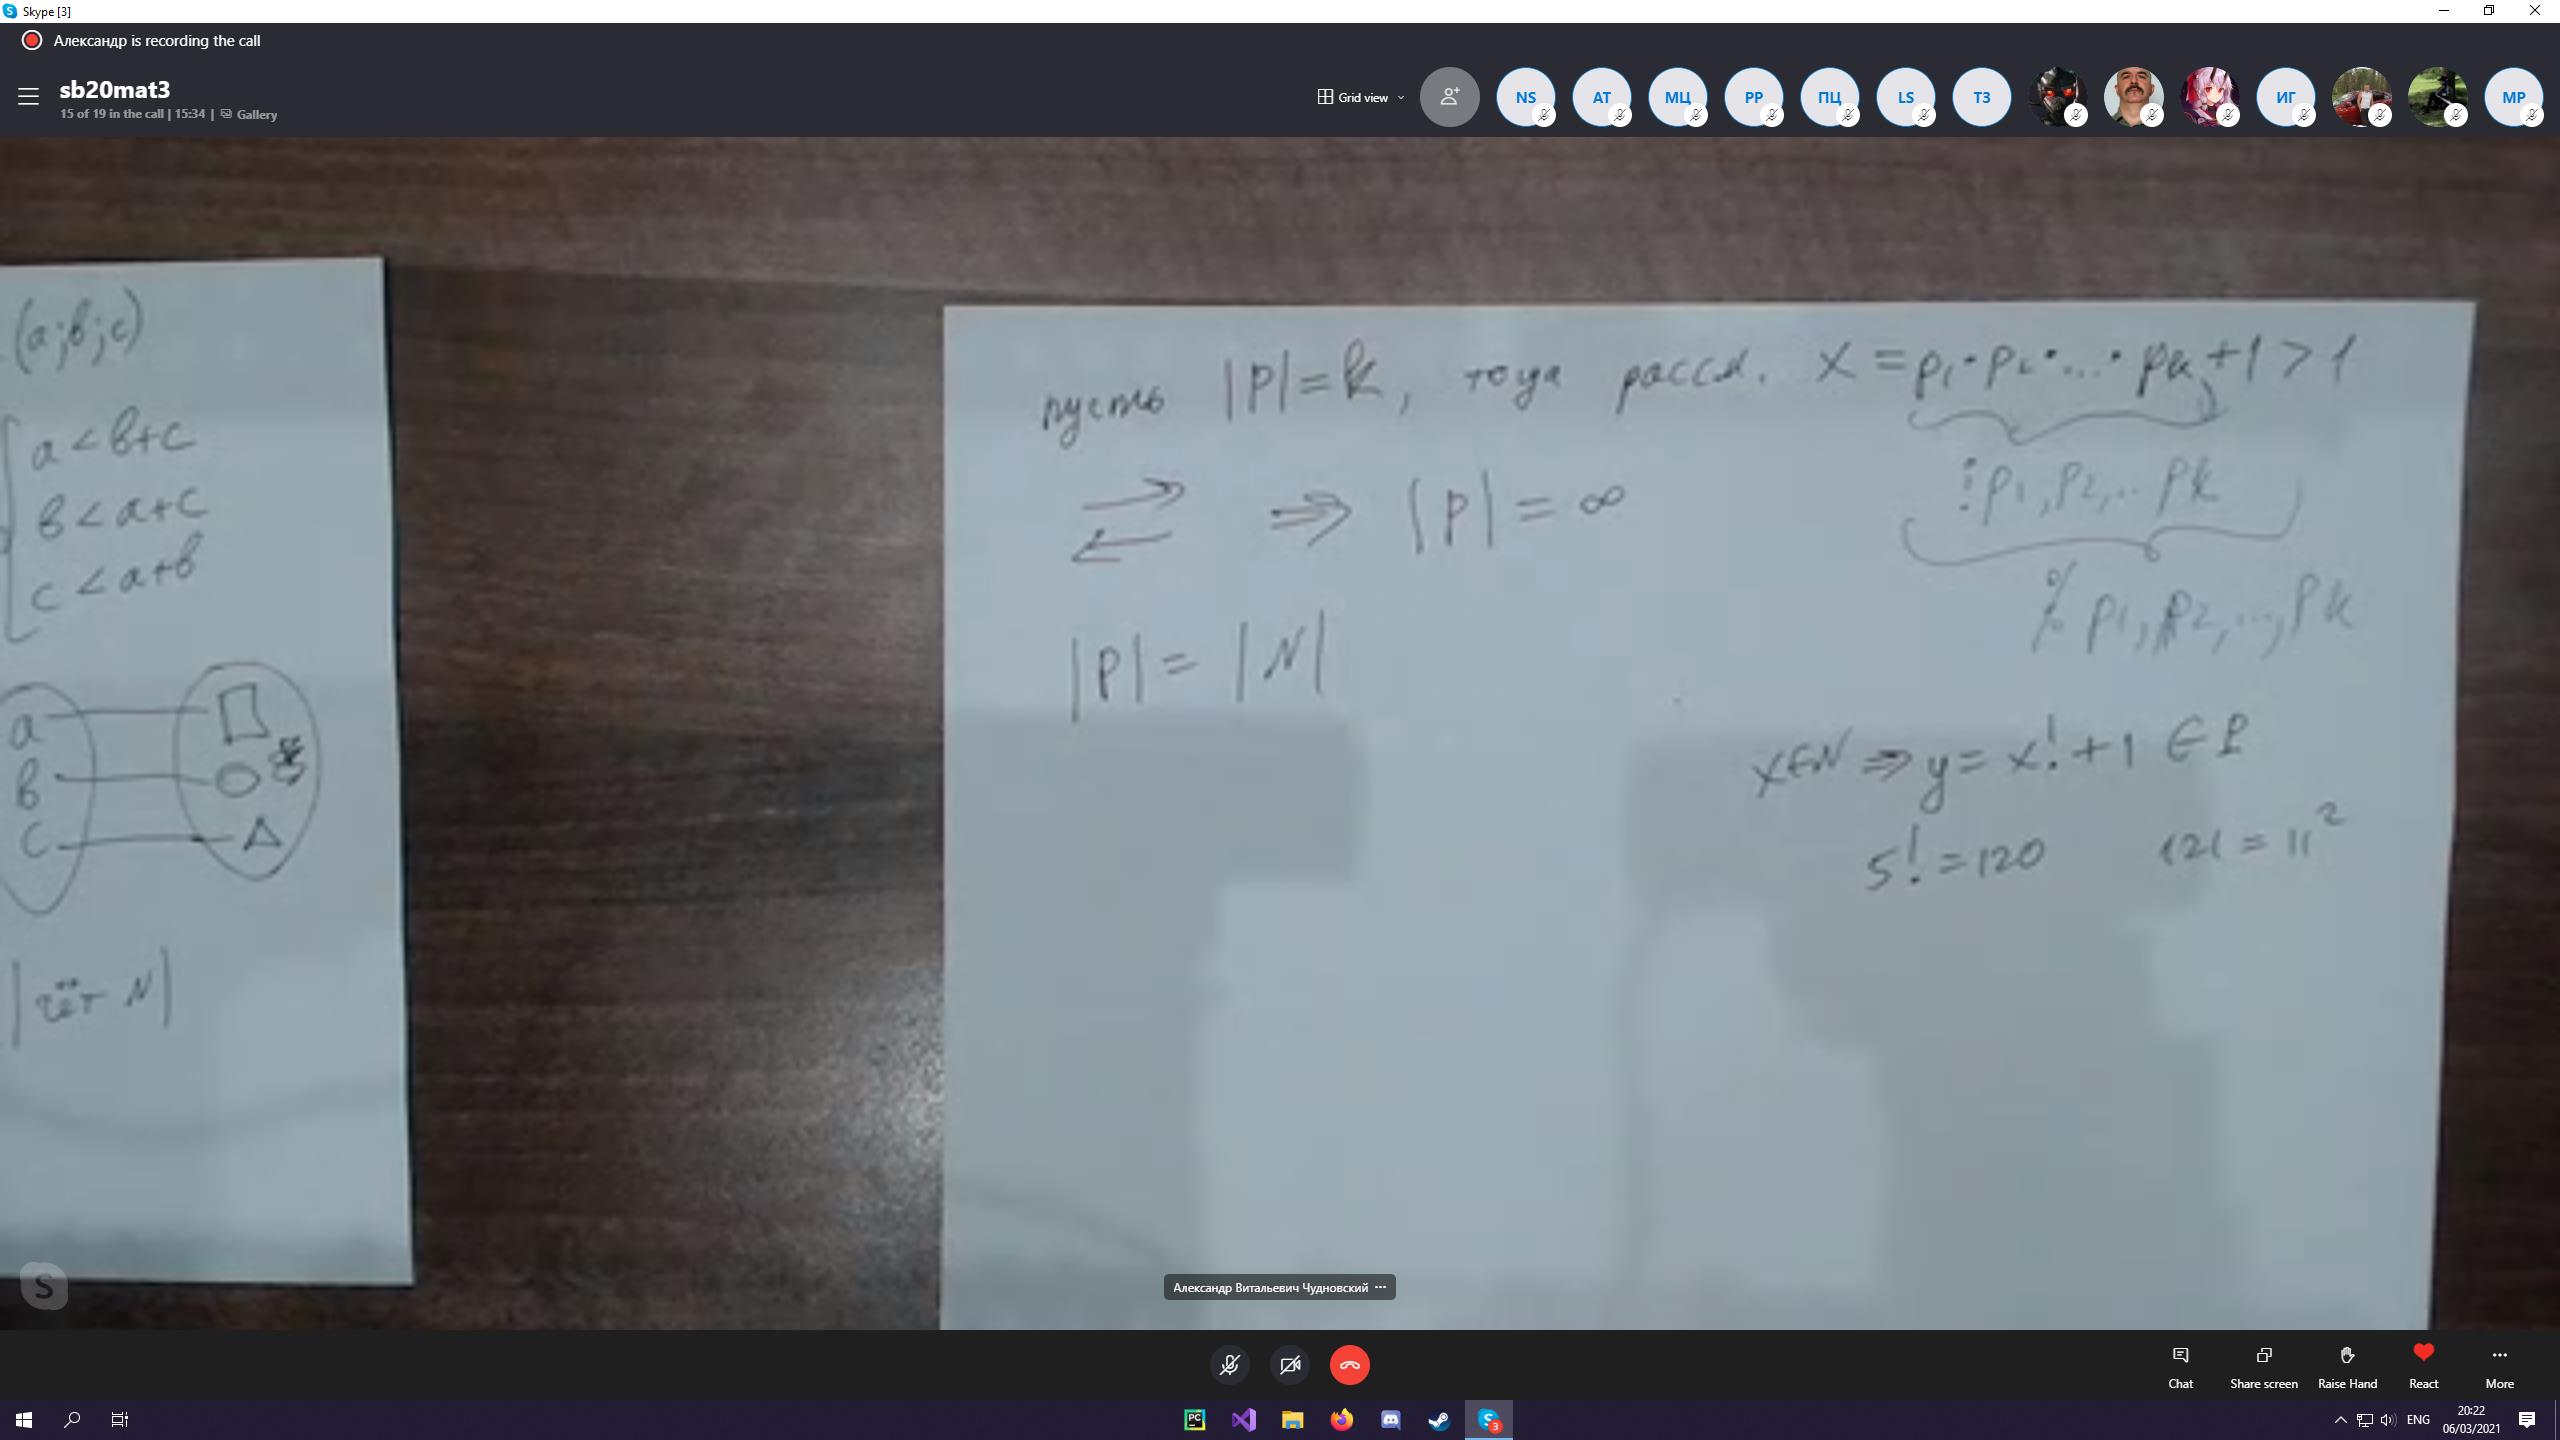 Skype [3]
Александр is recording the call
sb20mat3
15 of 19 in the call | 15:34 | Gallery
Grid view
NS AT МЦ PP ПЦ LS ТЗ ИГ MP
(a;b;c)
a < b+c
b < a+c
c < a+b
a
b
c
|чёт N|
пусть |P|=k, тогда рассм. x = p1·p2·...·pk+1>1
⋮p1,p2,..pk
⇒ |P| = ∞
p1,p2,...,pk
|P| = |N|
x∈N ⇒ y = x!+1 ∈ P
5! = 120 121 = 11²
Александр Витальевич Чудновский ...
Chat Share screen Raise Hand React More
PC
S 3
ENG
20:22
06/03/2021